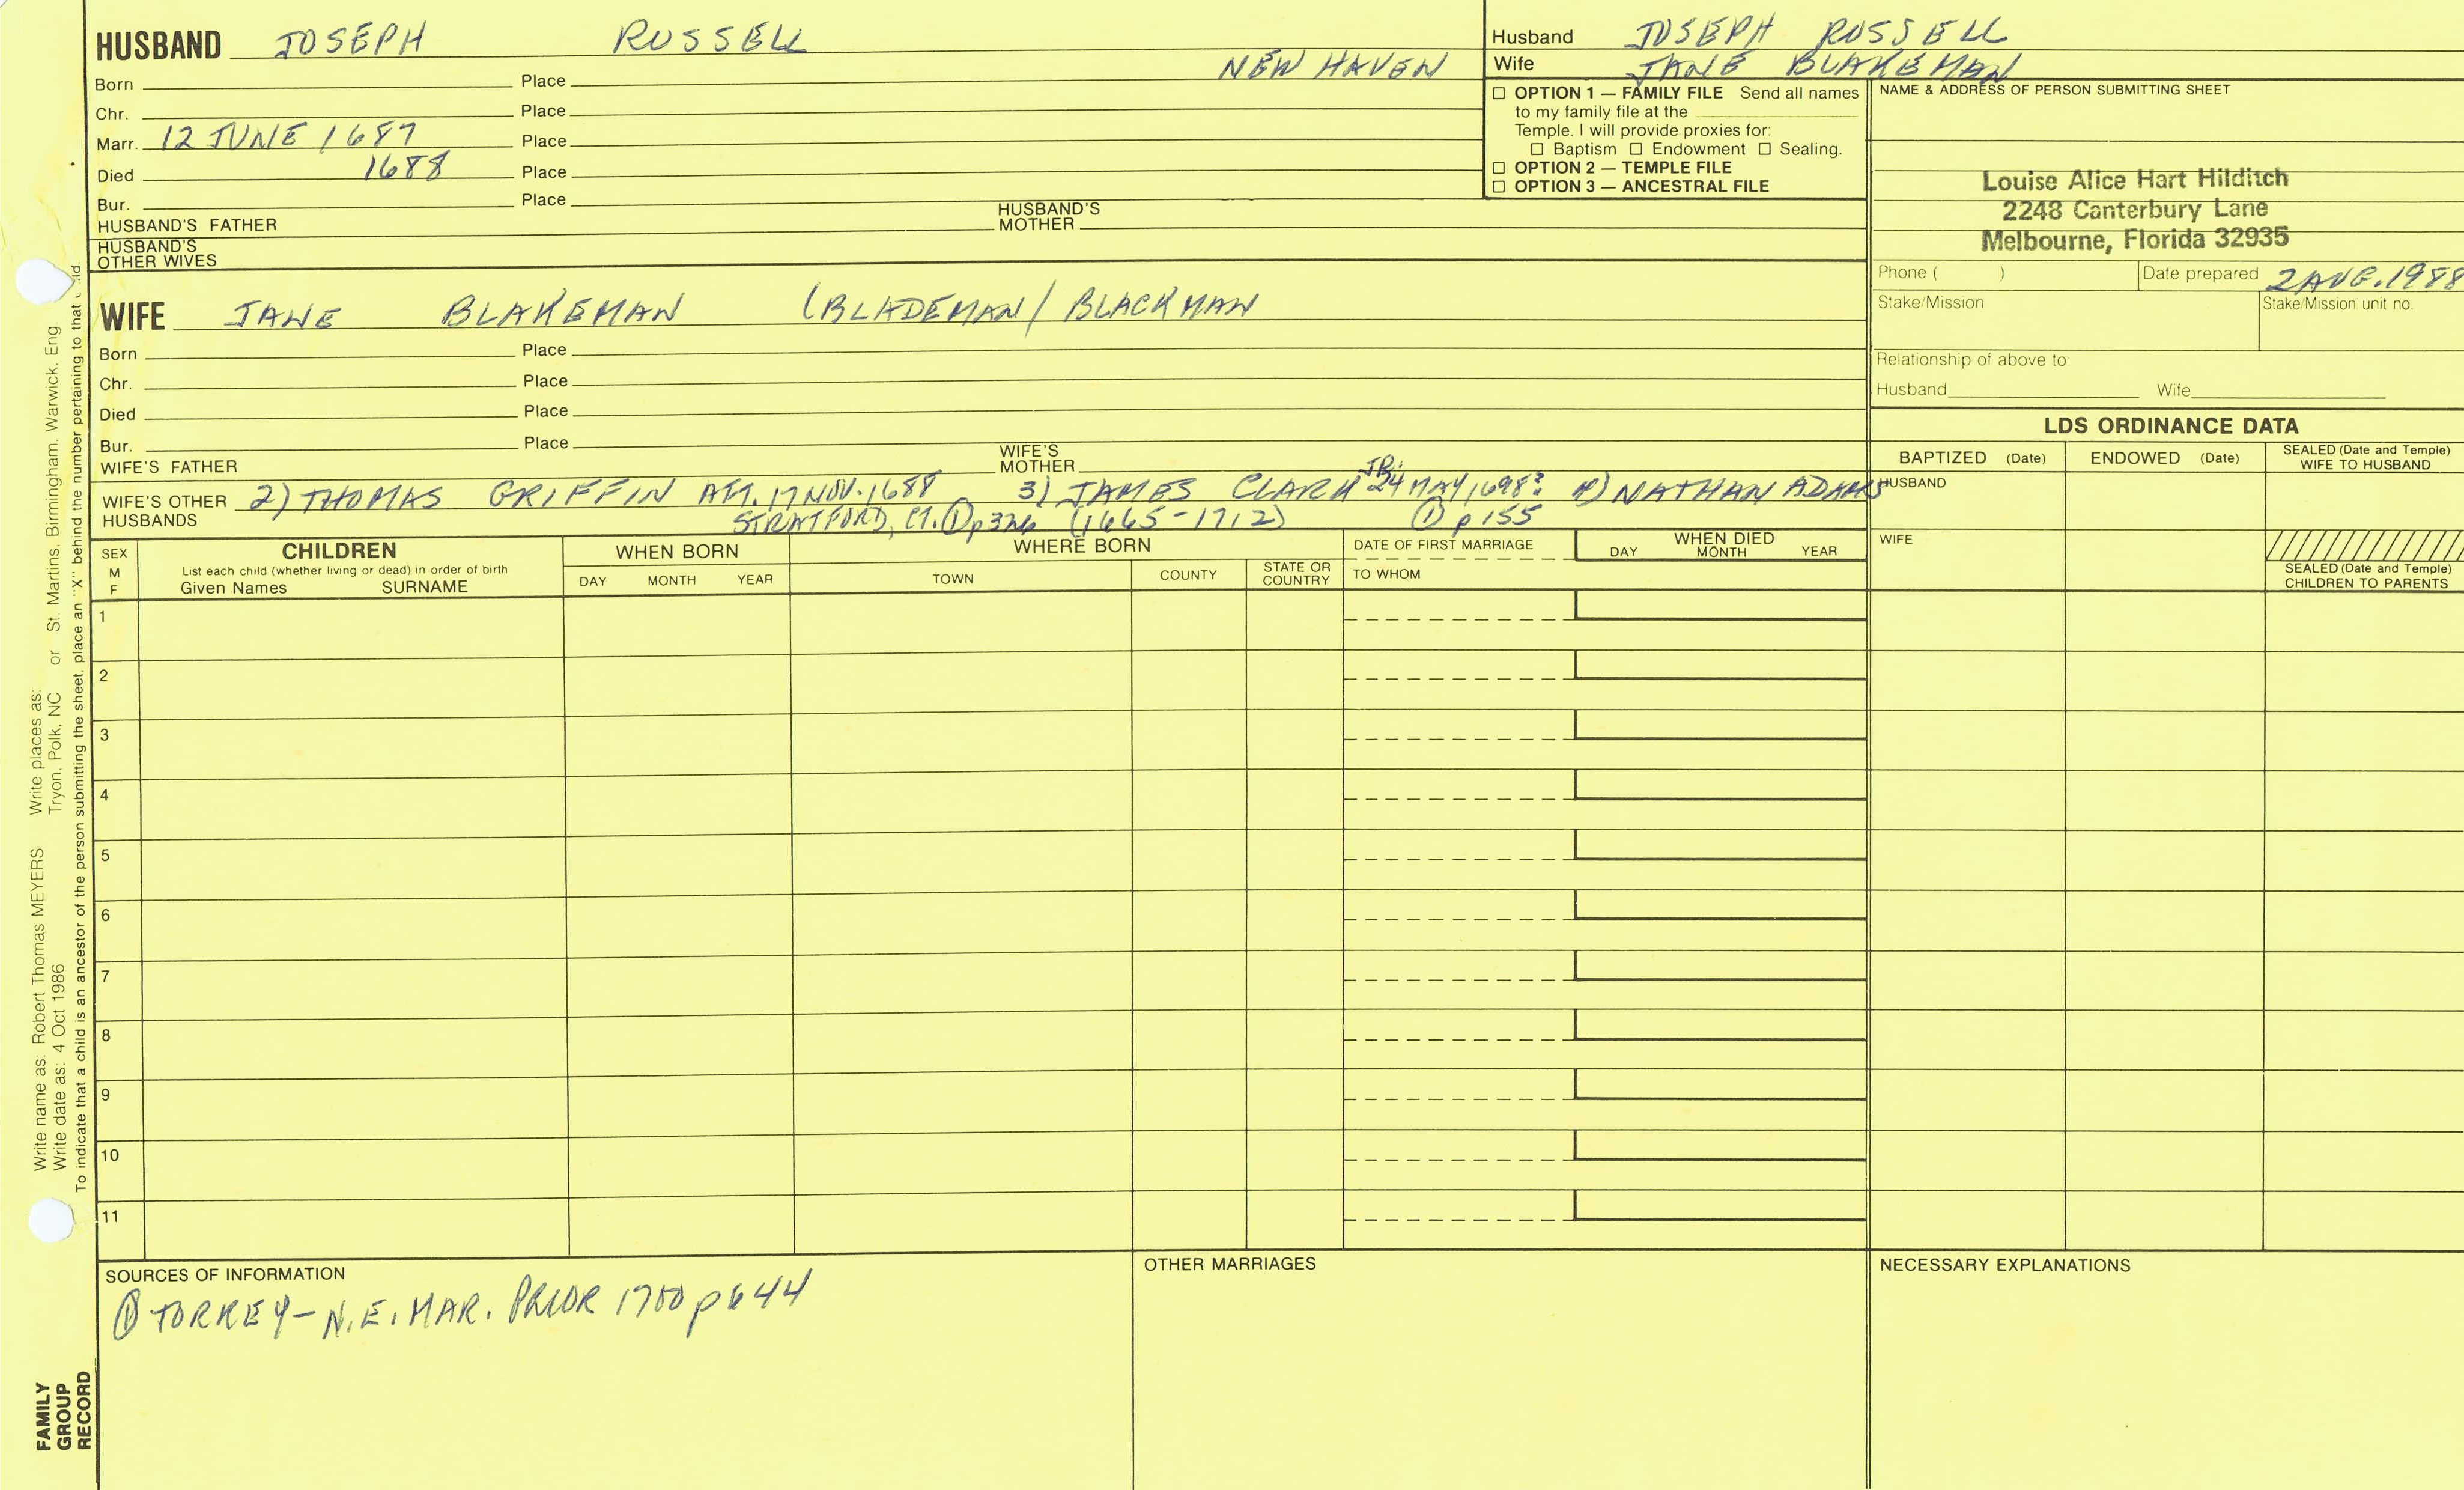 HUSBAND JOSEPH RUSSELL
NEW HAVEN
Born Place
Chr. Place
Marr. 12 JUNE 1687 Place
Died 1688 Place
Bur. Place
HUSBAND'S FATHER HUSBAND'S MOTHER
HUSBAND'S OTHER WIVES
Husband JOSEPH RUSSELL
Wife JANE BLAKEMAN
☐ OPTION 1 — FAMILY FILE Send all names
to my family file at the
Temple. I will provide proxies for:
☐ Baptism ☐ Endowment ☐ Sealing.
☐ OPTION 2 — TEMPLE FILE
☐ OPTION 3 — ANCESTRAL FILE
NAME & ADDRESS OF PERSON SUBMITTING SHEET
Louise Alice Hart Hilditch
2248 Canterbury Lane
Melbourne, Florida 32935
Phone ( ) Date prepared 2 AUG. 1988
Stake/Mission Stake/Mission unit no.
Relationship of above to:
Husband Wife
WIFE JANE BLAKEMAN (BLADEMAN/BLACKMAN
Born Place
Chr. Place
Died Place
Bur. Place
WIFE'S FATHER WIFE'S MOTHER
WIFE'S OTHER HUSBANDS 2) THOMAS GRIFFIN AFT. 17 NOV. 1688 3) JAMES CLARK JR. 24 MAY 1698? 4) NATHAN ADAMS
STRATFORD, CT. ① p326 (1665-1712) ① p155
LDS ORDINANCE DATA
BAPTIZED (Date) ENDOWED (Date) SEALED (Date and Temple) WIFE TO HUSBAND
HUSBAND
WIFE
SEALED (Date and Temple) CHILDREN TO PARENTS
SEX M F
CHILDREN
List each child (whether living or dead) in order of birth
Given Names SURNAME
WHEN BORN
DAY MONTH YEAR
WHERE BORN
TOWN COUNTY STATE OR COUNTRY
DATE OF FIRST MARRIAGE
TO WHOM
WHEN DIED
DAY MONTH YEAR
1
2
3
4
5
6
7
8
9
10
11
SOURCES OF INFORMATION
① TORREY- N.E. MAR. PRIOR 1700 p644
OTHER MARRIAGES
NECESSARY EXPLANATIONS
Write name as: Robert Thomas MEYERS Write places as: 
Write date as: 4 Oct 1986 Tryon, Polk, NC or St. Martins, Birmingham, Warwick, Eng
To indicate that a child is an ancestor of the person submitting the sheet, place an "X" behind the number pertaining to that
FAMILY
GROUP
RECORD